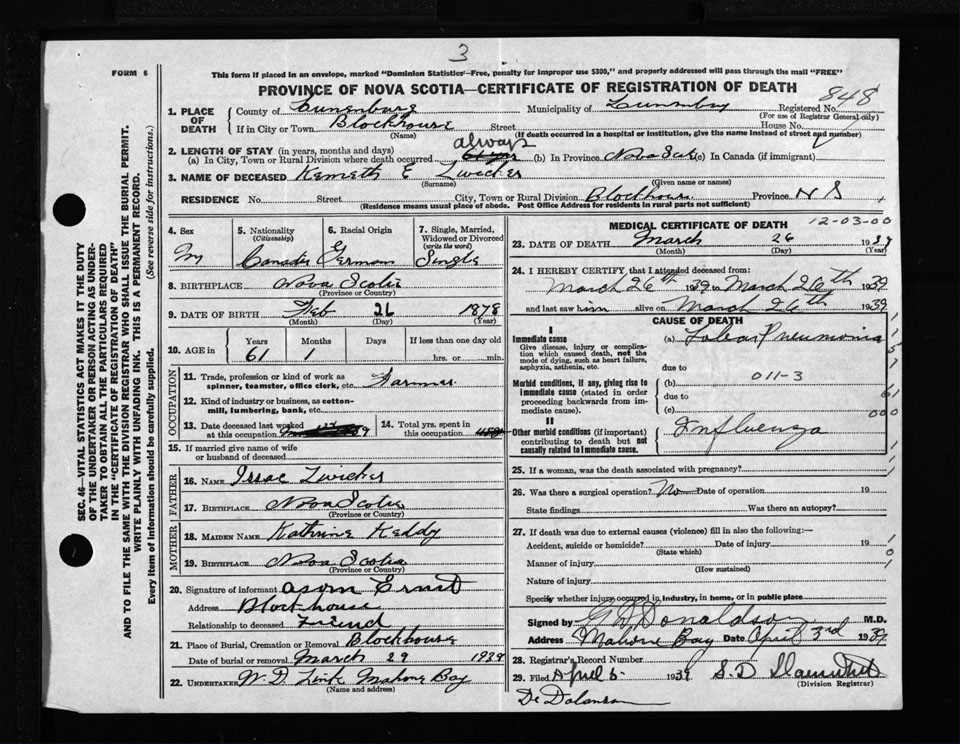 3
FORM 6
This form if placed in an envelope, marked "Dominion Statistics—Free, penalty for improper use $300," and properly addressed will pass through the mail "FREE"
PROVINCE OF NOVA SCOTIA—CERTIFICATE OF REGISTRATION OF DEATH
848
1. PLACE OF DEATH County of Lunenburg Municipality of Registered No.
(For use of Registrar General only)
If in City or Town Blockhouse Street House No.
(Name) (If death occurred in a hospital or institution, give the name instead of street and number)
2. LENGTH OF STAY (in years, months and days) always
(a) In City, Town or Rural Division where death occurred (b) In Province Nova Scotia (c) In Canada (if immigrant)
3. NAME OF DECEASED Kenneth E Zwicker
(Surname) (Given name or names)
RESIDENCE No. Street City, Town or Rural Division Blockhouse Province N S
(Residence means usual place of abode. Post Office Address for residents in rural parts not sufficient)
4. Sex 5. Nationality (Citizenship) 6. Racial Origin 7. Single, Married, Widowed or Divorced (write the word)
M Canadian German Single
8. BIRTHPLACE Nova Scotia
(Province or Country)
9. DATE OF BIRTH Feb 26 1878
(Month) (Day) (Year)
10. AGE in Years Months Days If less than one day old
61 1 hrs. or min.
OCCUPATION
11. Trade, profession or kind of work as spinner, teamster, office clerk, etc. Farmer
12. Kind of industry or business, as cotton-mill, lumbering, bank, etc.
13. Date deceased last worked at this occupation 14. Total yrs. spent in this occupation
15. If married give name of wife or husband of deceased
FATHER
16. NAME Issac Zwicker
17. BIRTHPLACE Nova Scotia
(Province or Country)
MOTHER
18. MAIDEN NAME Kathrine Keddy
19. BIRTHPLACE Nova Scotia
(Province or Country)
20. Signature of informant Ernst
Address Blockhouse
Relationship to deceased Friend
21. Place of Burial, Cremation or Removal Blockhouse
Date of burial or removal March 29 1939
22. UNDERTAKER W. D Zink Mahone Bay
(Name and address)
MEDICAL CERTIFICATE OF DEATH 12-03-00
23. DATE OF DEATH March 26 1939
(Month) (Day) (Year)
24. I HEREBY CERTIFY that I attended deceased from:
March 26th 1939 to March 26th 1939
and last saw him alive on March 26th 1939
CAUSE OF DEATH
I
Immediate cause (a) Lobar Pneumonia
Give disease, injury or complication which caused death, not the mode of dying, such as heart failure, asphyxia, asthenia, etc.
due to
011-3
Morbid conditions, if any, giving rise to immediate cause (stated in order proceeding backwards from immediate cause). (b)
due to
(c)
II
Other morbid conditions (if important) contributing to death but not causally related to immediate cause. Influenza
25. If a woman, was the death associated with pregnancy?
26. Was there a surgical operation? No Date of operation 19
State findings Was there an autopsy?
27. If death was due to external causes (violence) fill in also the following:—
Accident, suicide or homicide? Date of injury 19
(State which)
Manner of injury
(How sustained)
Nature of injury
Specify whether injury occurred in industry, in home, or in public place
Signed by G D Donaldson M.D.
Address Mahone Bay Date April 3rd 1939
28. Registrar's Record Number
29. Filed April 5 1939 S. D
(Division Registrar)
SEC. 46—VITAL STATISTICS ACT MAKES IT THE DUTY
OF THE UNDERTAKER OR PERSON ACTING AS UNDER-
TAKER TO OBTAIN ALL THE PARTICULARS REQUIRED
IN THE "CERTIFICATE OF REGISTRATION OF DEATH"
AND TO FILE THE SAME WITH THE DIVISION REGISTRAR WHO SHALL ISSUE THE BURIAL PERMIT.
WRITE PLAINLY WITH UNFADING INK. THIS IS A PERMANENT RECORD.
Every item of information should be carefully supplied. (See reverse side for instructions.)